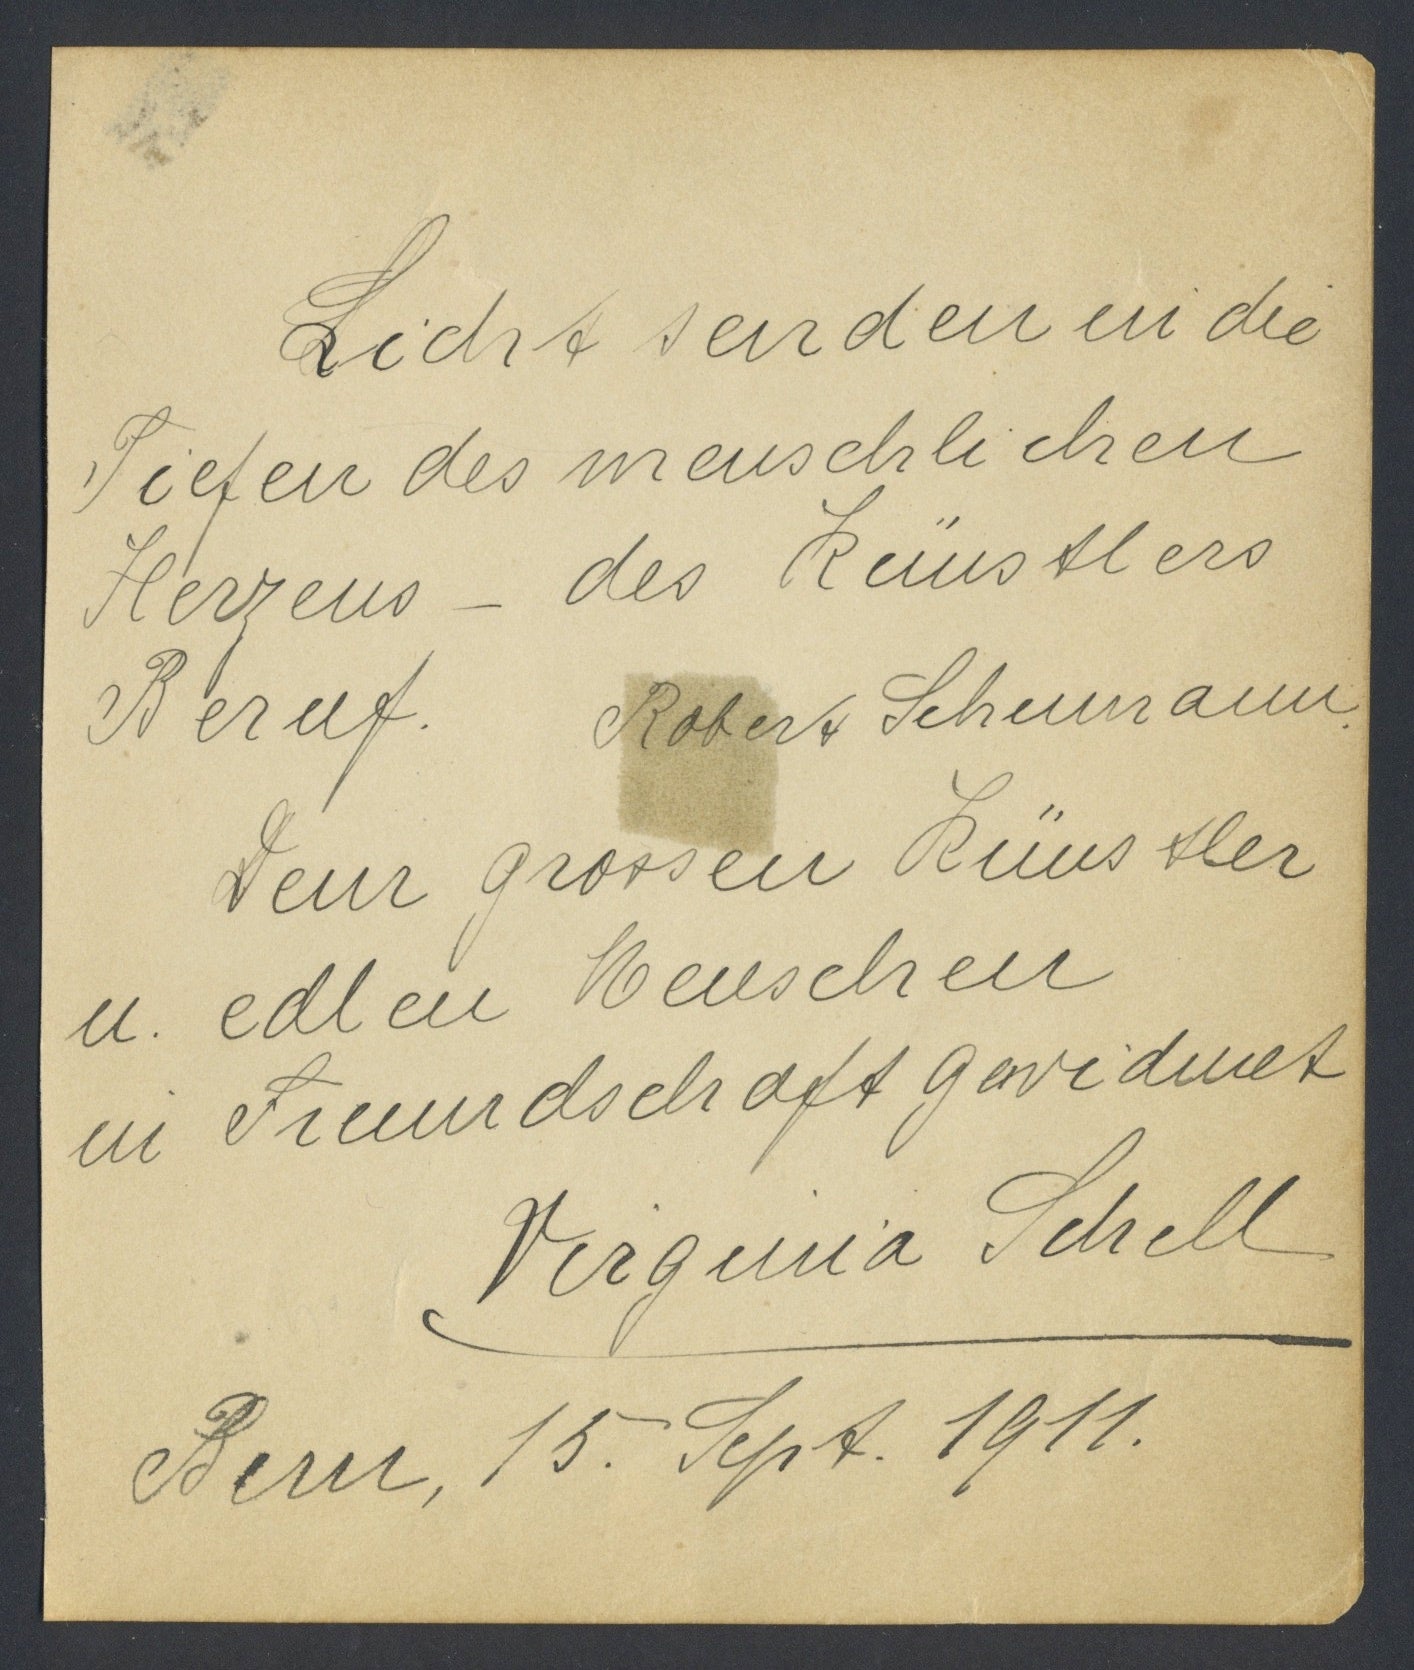 Licht senden in die
Tiefen des menschlichen
Herzens – des Künstlers
Beruf. Robert Schumann.
Dem grossen Künstler
u. edlen Menschen
in Freundschaft gewidmet
Virginia Schell
Bern, 15. Sept. 1911.